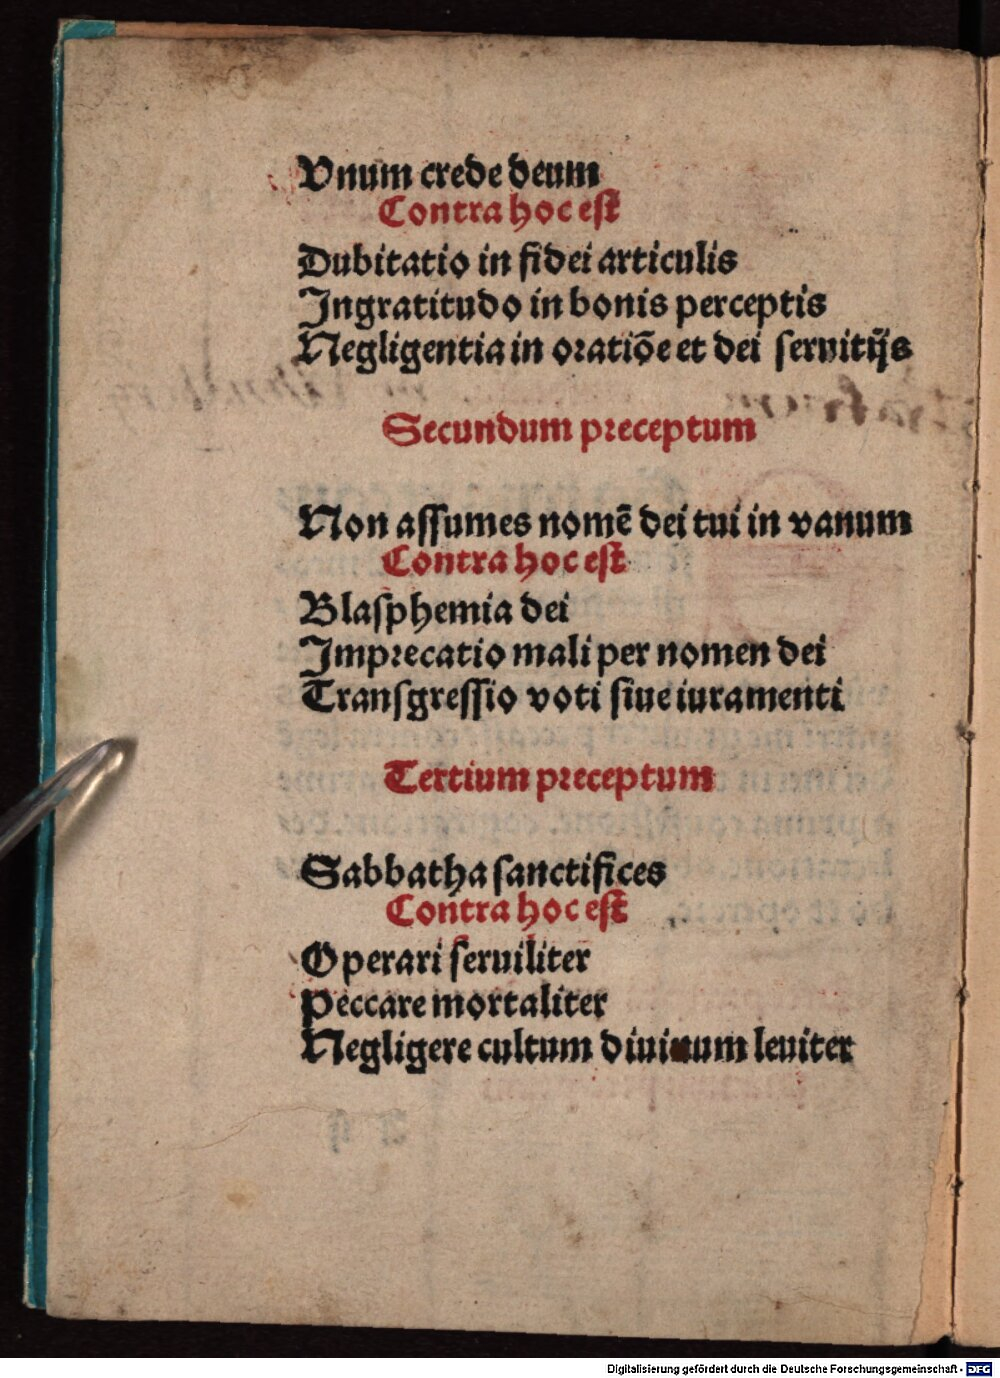 Vnum crede deum
Contra hoc est
Dubitatio in fidei articulis
Ingratitudo in bonis perceptis
Negligentia in oratiōe et dei seruitijs
Secundum preceptum
Non assumes nomē dei tui in vanum
Contra hoc est
Blasphemia dei
Imprecatio mali per nomen dei
Transgressio voti siue iuramenti
Tertium preceptum
Sabbatha sanctifices
Contra hoc est
Operari seruiliter
Peccare mortaliter
Negligere cultum diuinum leuiter
Digitalisierung gefördert durch die Deutsche Forschungsgemeinschaft - DFG